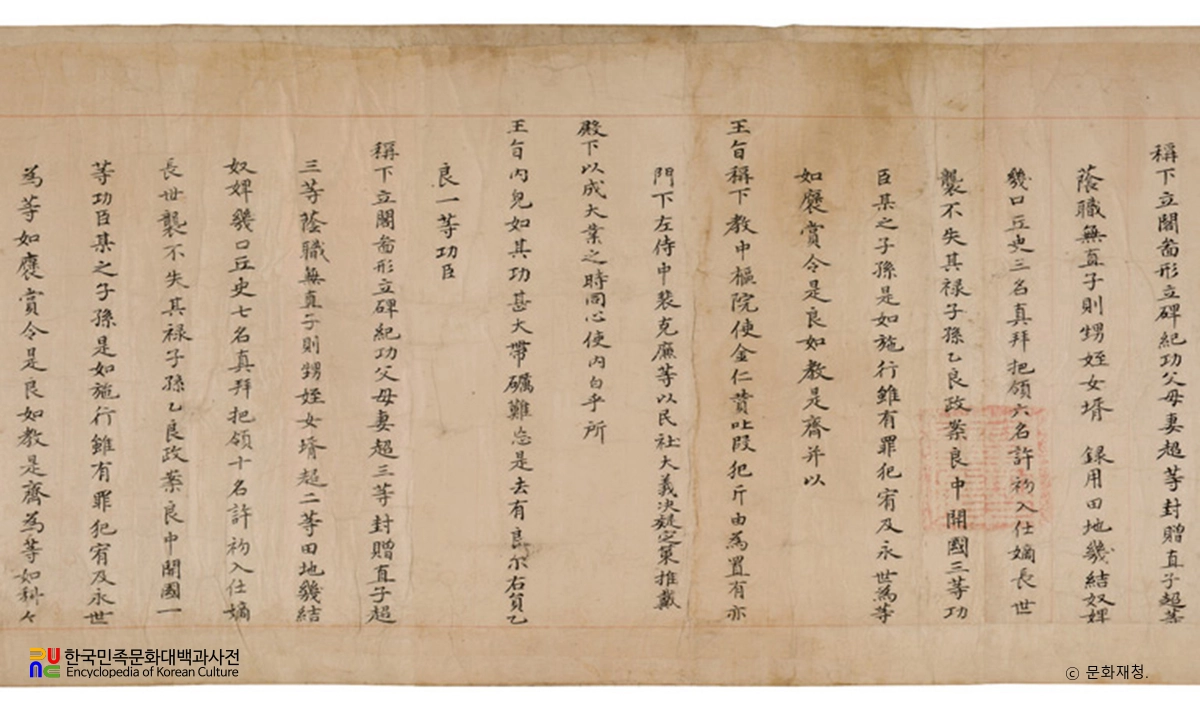 稱下立閣啚形立碑紀功父母妻超等封贈直子超等
蔭職無直子則甥姪女壻 録用田地幾結奴婢
幾口丘史三名真拜把領六名許初入仕嫡長世
襲不失其禄子孫乙良政案良中開國三等功
臣某之子孫是如施行雖有罪犯宥及永世爲等
如褒賞令是良如教是齊并以
王旨稱下教中樞院使金仁賛叱段犯斤由爲置有亦
門下左侍中裴克廉等以民社大義决疑定策推戴
殿下以成大業之時同心使內白乎所
王旨內皃如其功甚大帶礪難忘是去有良尔右員乙
良一等功臣
稱下立閣啚形立碑紀功父母妻超三等封贈直子超
三等蔭職無直子則甥姪女壻超二等田地幾結
奴婢幾口丘史七名真拜把領十名許初入仕嫡
長世襲不失其禄子孫乙良政案良中開國一
等功臣某之子孫是如施行雖有罪犯宥及永世
爲等如褒賞令是良如教是齊爲等如科々
한국민족문화대백과사전
Encyclopedia of Korean Culture
ⓒ 문화재청.